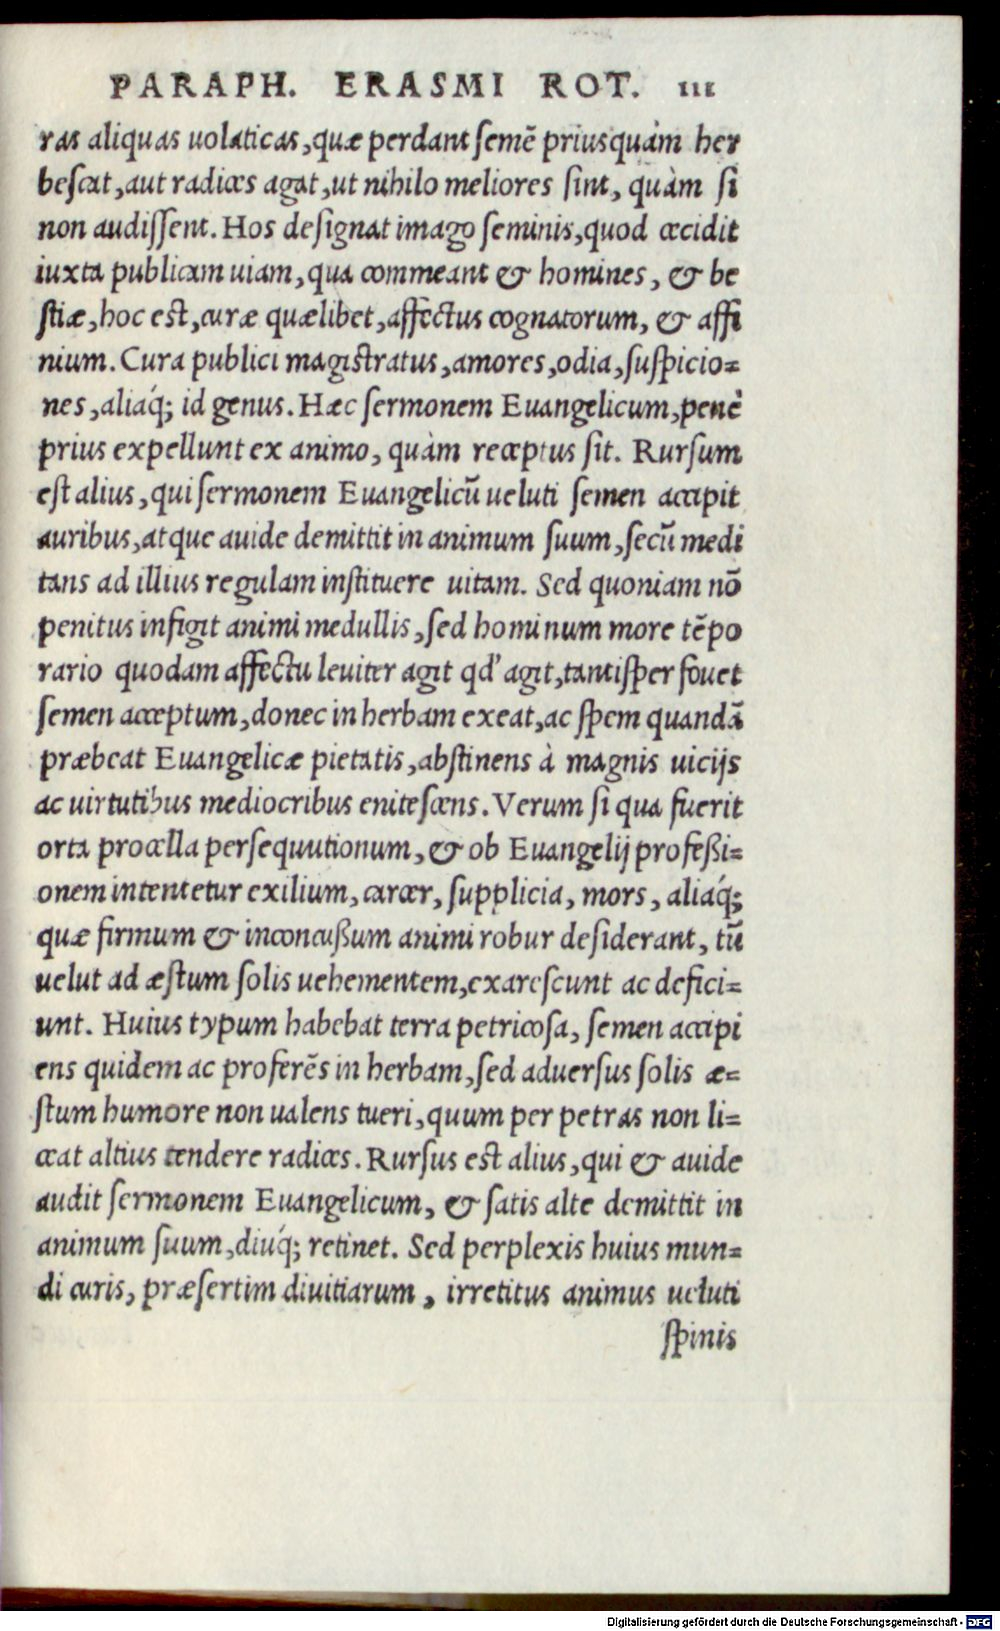 PARAPH. ERASMI ROT. III
ras aliquas uolaticas, quæ perdant semẽ priusquàm her
bescat, aut radices agat, ut nihilo meliores sint, quàm si
non audissent. Hos designat imago seminis, quod cecidit
iuxta publicam uiam, qua commeant & homines, & be
stiæ, hoc est, curæ quælibet, affectus cognatorum, & affi
nium. Cura publici magistratus, amores, odia, suspicio=
nes, aliaq́; id genus. Hæc sermonem Euangelicum, penè
prius expellunt ex animo, quàm receptus sit. Rursum
est alius, qui sermonem Euangelicũ ueluti semen accipit
auribus, atque auide demittit in animum suum, secũ medi
tans ad illius regulam instituere uitam. Sed quoniam nõ
penitus infigit animi medullis, sed hominum more tẽpo
rario quodam affectu leuiter agit qd' agit, tantisper fouet
semen acceptum, donec in herbam exeat, ac spem quandã
præbeat Euangelicæ pietatis, abstinens à magnis uicijs
ac uirtutibus mediocribus enitescens. Verum si qua fuerit
orta procella persequutionum, & ob Euangelij profeßi=
onem intentetur exilium, carcer, supplicia, mors, aliaq́;
quæ firmum & inconcußum animi robur desiderant, tũ
uelut ad æstum solis uehementem, exarescunt ac defici=
unt. Huius typum habebat terra petricosa, semen accipi
ens quidem ac proferẽs in herbam, sed aduersus solis æ=
stum humore non ualens tueri, quum per petras non li=
ceat altius tendere radices. Rursus est alius, qui & auide
audit sermonem Euangelicum, & satis alte demittit in
animum suum, diuq́; retinet. Sed perplexis huius mun=
di curis, præsertim diuitiarum, irretitus animus ueluti
spinis
Digitalisierung gefördert durch die Deutsche Forschungsgemeinschaft - DFG